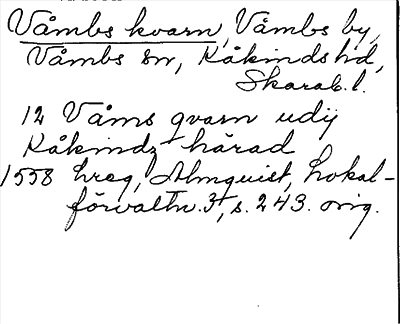 Våmbs kvarn, Våmbs by,
Våmbs sn, Kåkinds hd,
Skarab. l.
12 Våms qvarn udij
Kåkindz härad
1558 hreg, Almquist, Lokal-
förvaltn. 3, s. 243. orig.